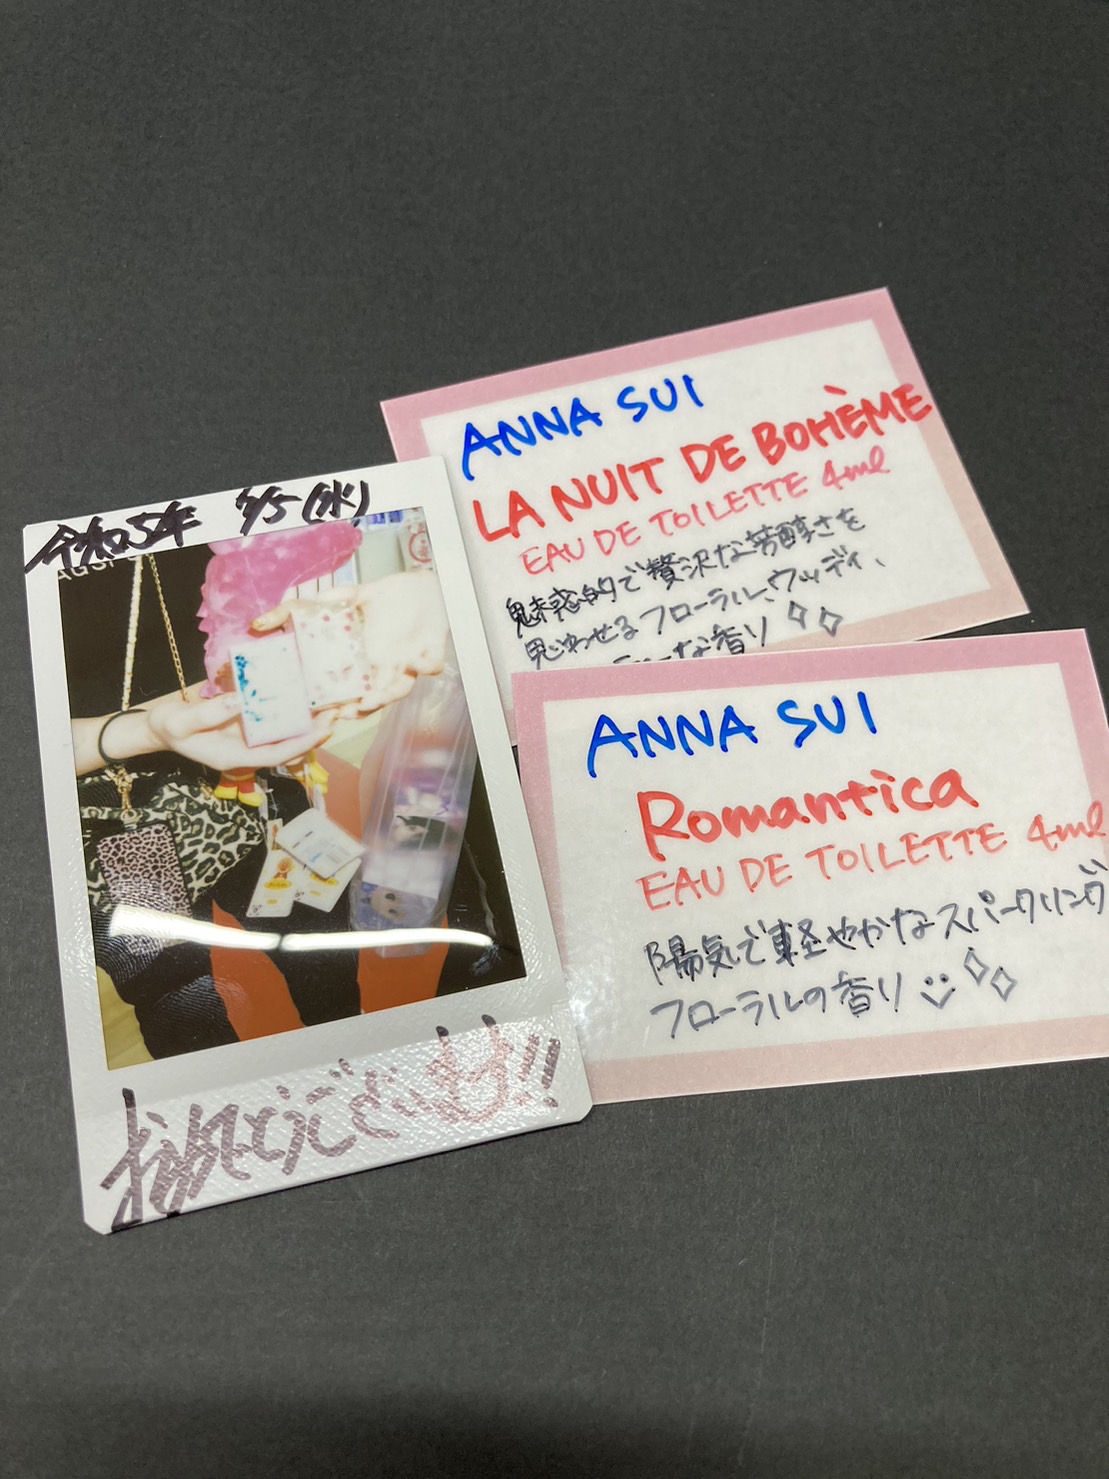 令和5年 7/5(水)
おめでとうございます!!
ANNA SUI
LA NUIT DE BOHÈME
EAU DE TOILETTE 4ml
魅惑的で贅沢な芳醇さを
思わせるフローラル、ウッディ、
な香り
ANNA SUI
Romantica
EAU DE TOILETTE 4ml
陽気で軽やかなスパークリング
フローラルの香り